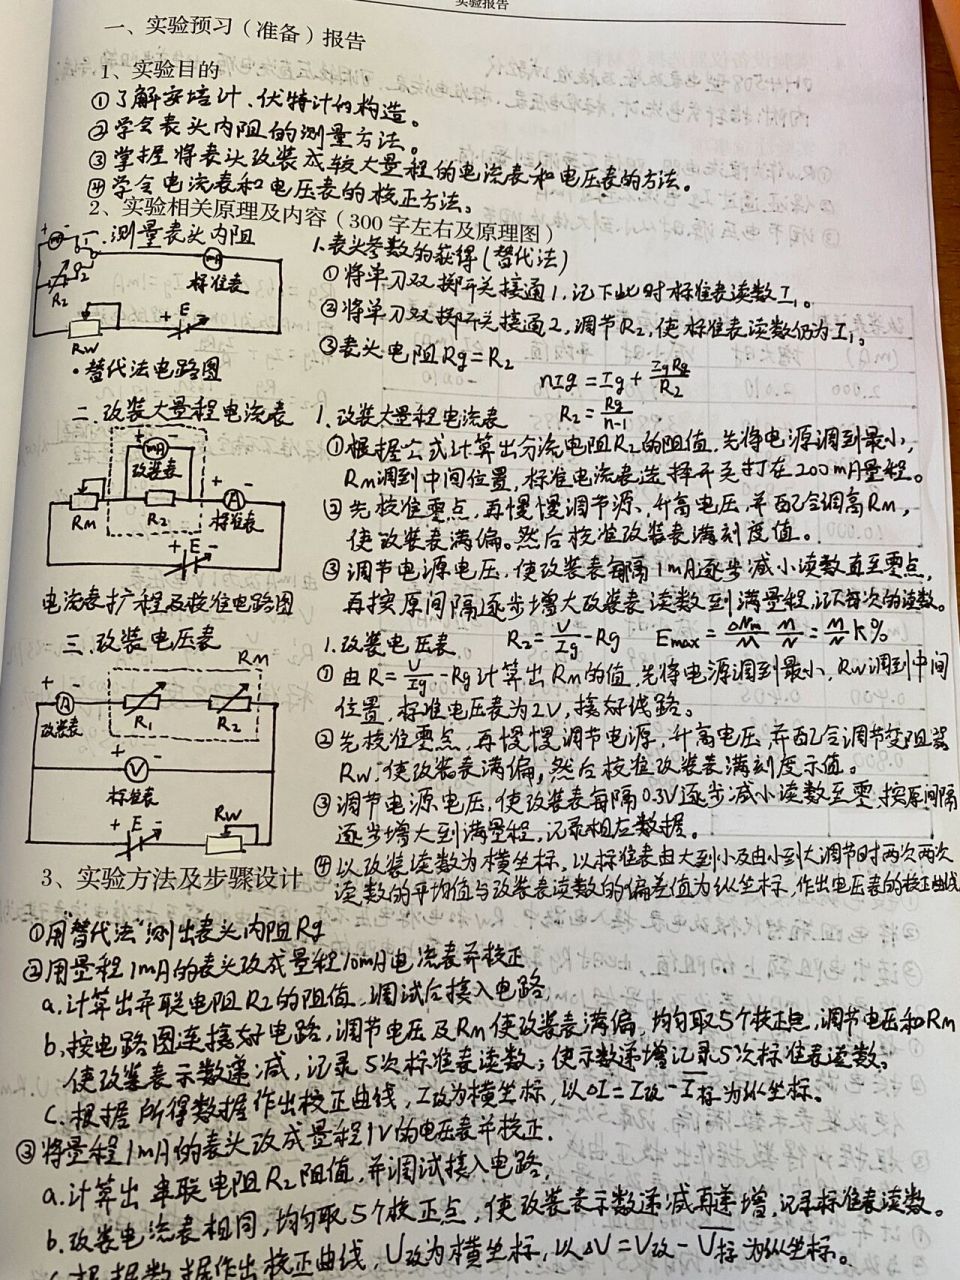 实验报告
一、实验预习（准备）报告
1、实验目的
①了解安培计、伏特计的构造。
②学会表头内阻的测量方法。
③掌握将表头改装成较大量程的电流表和电压表的方法。
④学会电流表和电压表的校正方法。
2、实验相关原理及内容（300字左右及原理图）
一.测量表头内阻
mA
1
2
R2
mA
标准表
RW
+ E -
•替代法电路图
1.表头参数的获得(替代法)
①将单刀双掷开关接通1，记下此时标准表读数I1。
②将单刀双掷开关接通2，调节R2，使标准表读数仍为I1。
③表头电阻Rg=R2
nIg=Ig+IgRg/R2
R2=Rg/n-1
二.改装大量程电流表
+ mA -
改装表
Rm
R2
+ A -
标准表
+ E -
电流表扩程及校准电路图
1.改装大量程电流表
①根据公式计算出分流电阻R2的阻值，先将电源调到最小，
Rm调到中间位置，标准电流表选择开关打在200mA量程。
②先校准零点，再慢慢调节源、升高电压，并配合调高Rm，
使改装表满偏。然后校准改装表满刻度值。
③调节电源电压，使改装表每隔1mA逐步减小读数直至零点，
再按原间隔逐步增大改装表读数到满量程，记下每次的读数。
三.改装电压表
RM
+ A -
改装表
R1
R2
+ V -
标准表
+ E -
RW
1.改装电压表 R2=V/Ig-Rg Emax=ΔNm/M M/N=M/N K%
①由R=V/Ig-Rg计算出Rm的值，先将电源调到最小，RW调到中间
位置，标准电压表为2V，接好线路。
②先校准零点，再慢慢调节电源，升高电压，并配合调节变阻器
RW，使改装表满偏，然后校准改装表满刻度示值。
③调节电源电压，使改装表每隔0.3V逐步减小读数至零，按原间隔
逐步增大到满量程，记录相应数据。
④以改装读数为横坐标，以标准表由大到小及由小到大调节时两次两次
读数的平均值与改装表读数的偏差值为纵坐标，作出电压表的校正曲线
3、实验方法及步骤设计
①用“替代法”测出表头内阻Rg
②用量程1mA的表头改成量程10mA电流表并校正
a.计算出并联电阻R2的阻值，调试后接入电路
b.按电路图连接好电路，调节电压及Rm使改装表满偏，均匀取5个校正点，调节电压和Rm
使改装表示数递减，记录5次标准表读数；使示数递增记录5次标准表读数；
C.根据所得数据作出校正曲线，I改为横坐标，以ΔI=I改-I标为纵坐标。
③将量程1mA的表头改成量程1V的电压表并校正.
a.计算出串联电阻R2阻值，并调试接入电路
b.改装电流表相同，均匀取5个校正点，使改装表示数递减再递增，记录标准表读数。
C.根据数据作出校正曲线，U改为横坐标，以ΔV=V改-V标为纵坐标。